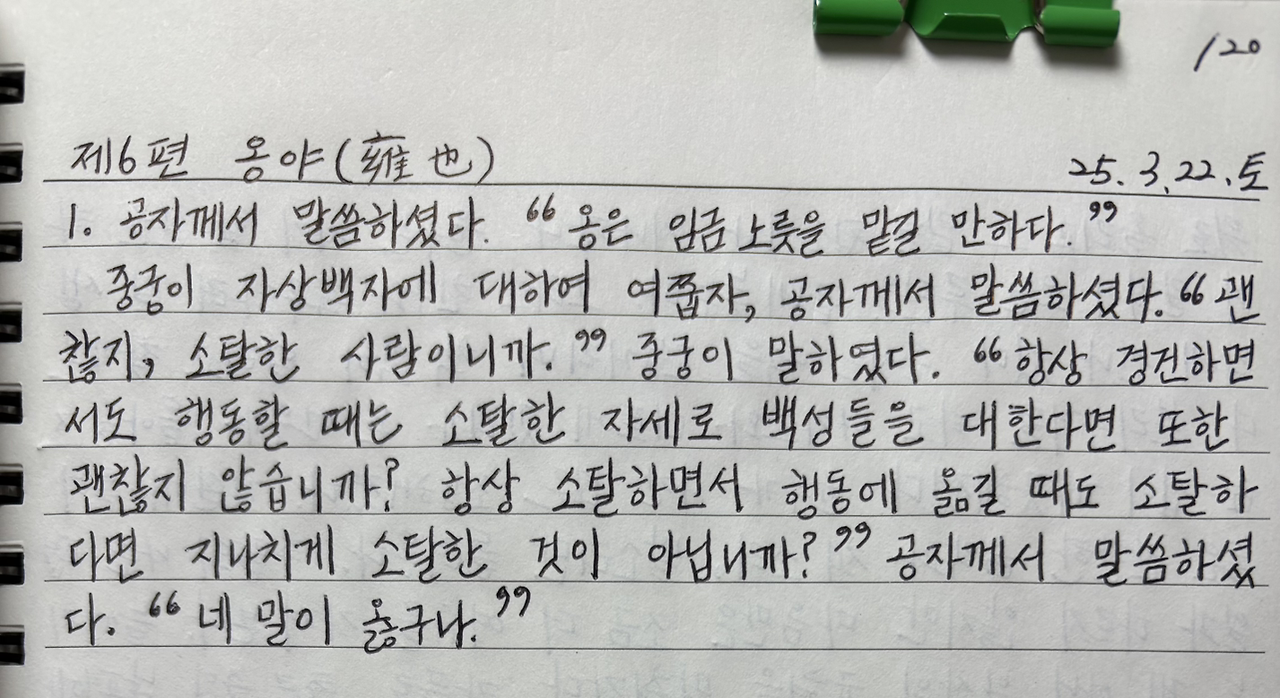 120
제6편 옹야(雍也)
25. 3. 22. 토
1. 공자께서 말씀하셨다. "옹은 임금 노릇을 맡길 만하다."
중궁이 자상백자에 대하여 여쭙자, 공자께서 말씀하셨다. "괜
찮지, 소탈한 사람이니까." 중궁이 말하였다. "항상 경건하면
서도 행동할 때는 소탈한 자세로 백성들을 대한다면 또한
괜찮지 않습니까? 항상 소탈하면서 행동에 옮길 때도 소탈하
다면 지나치게 소탈한 것이 아닙니까?" 공자께서 말씀하셨
다. "네 말이 옳구나."